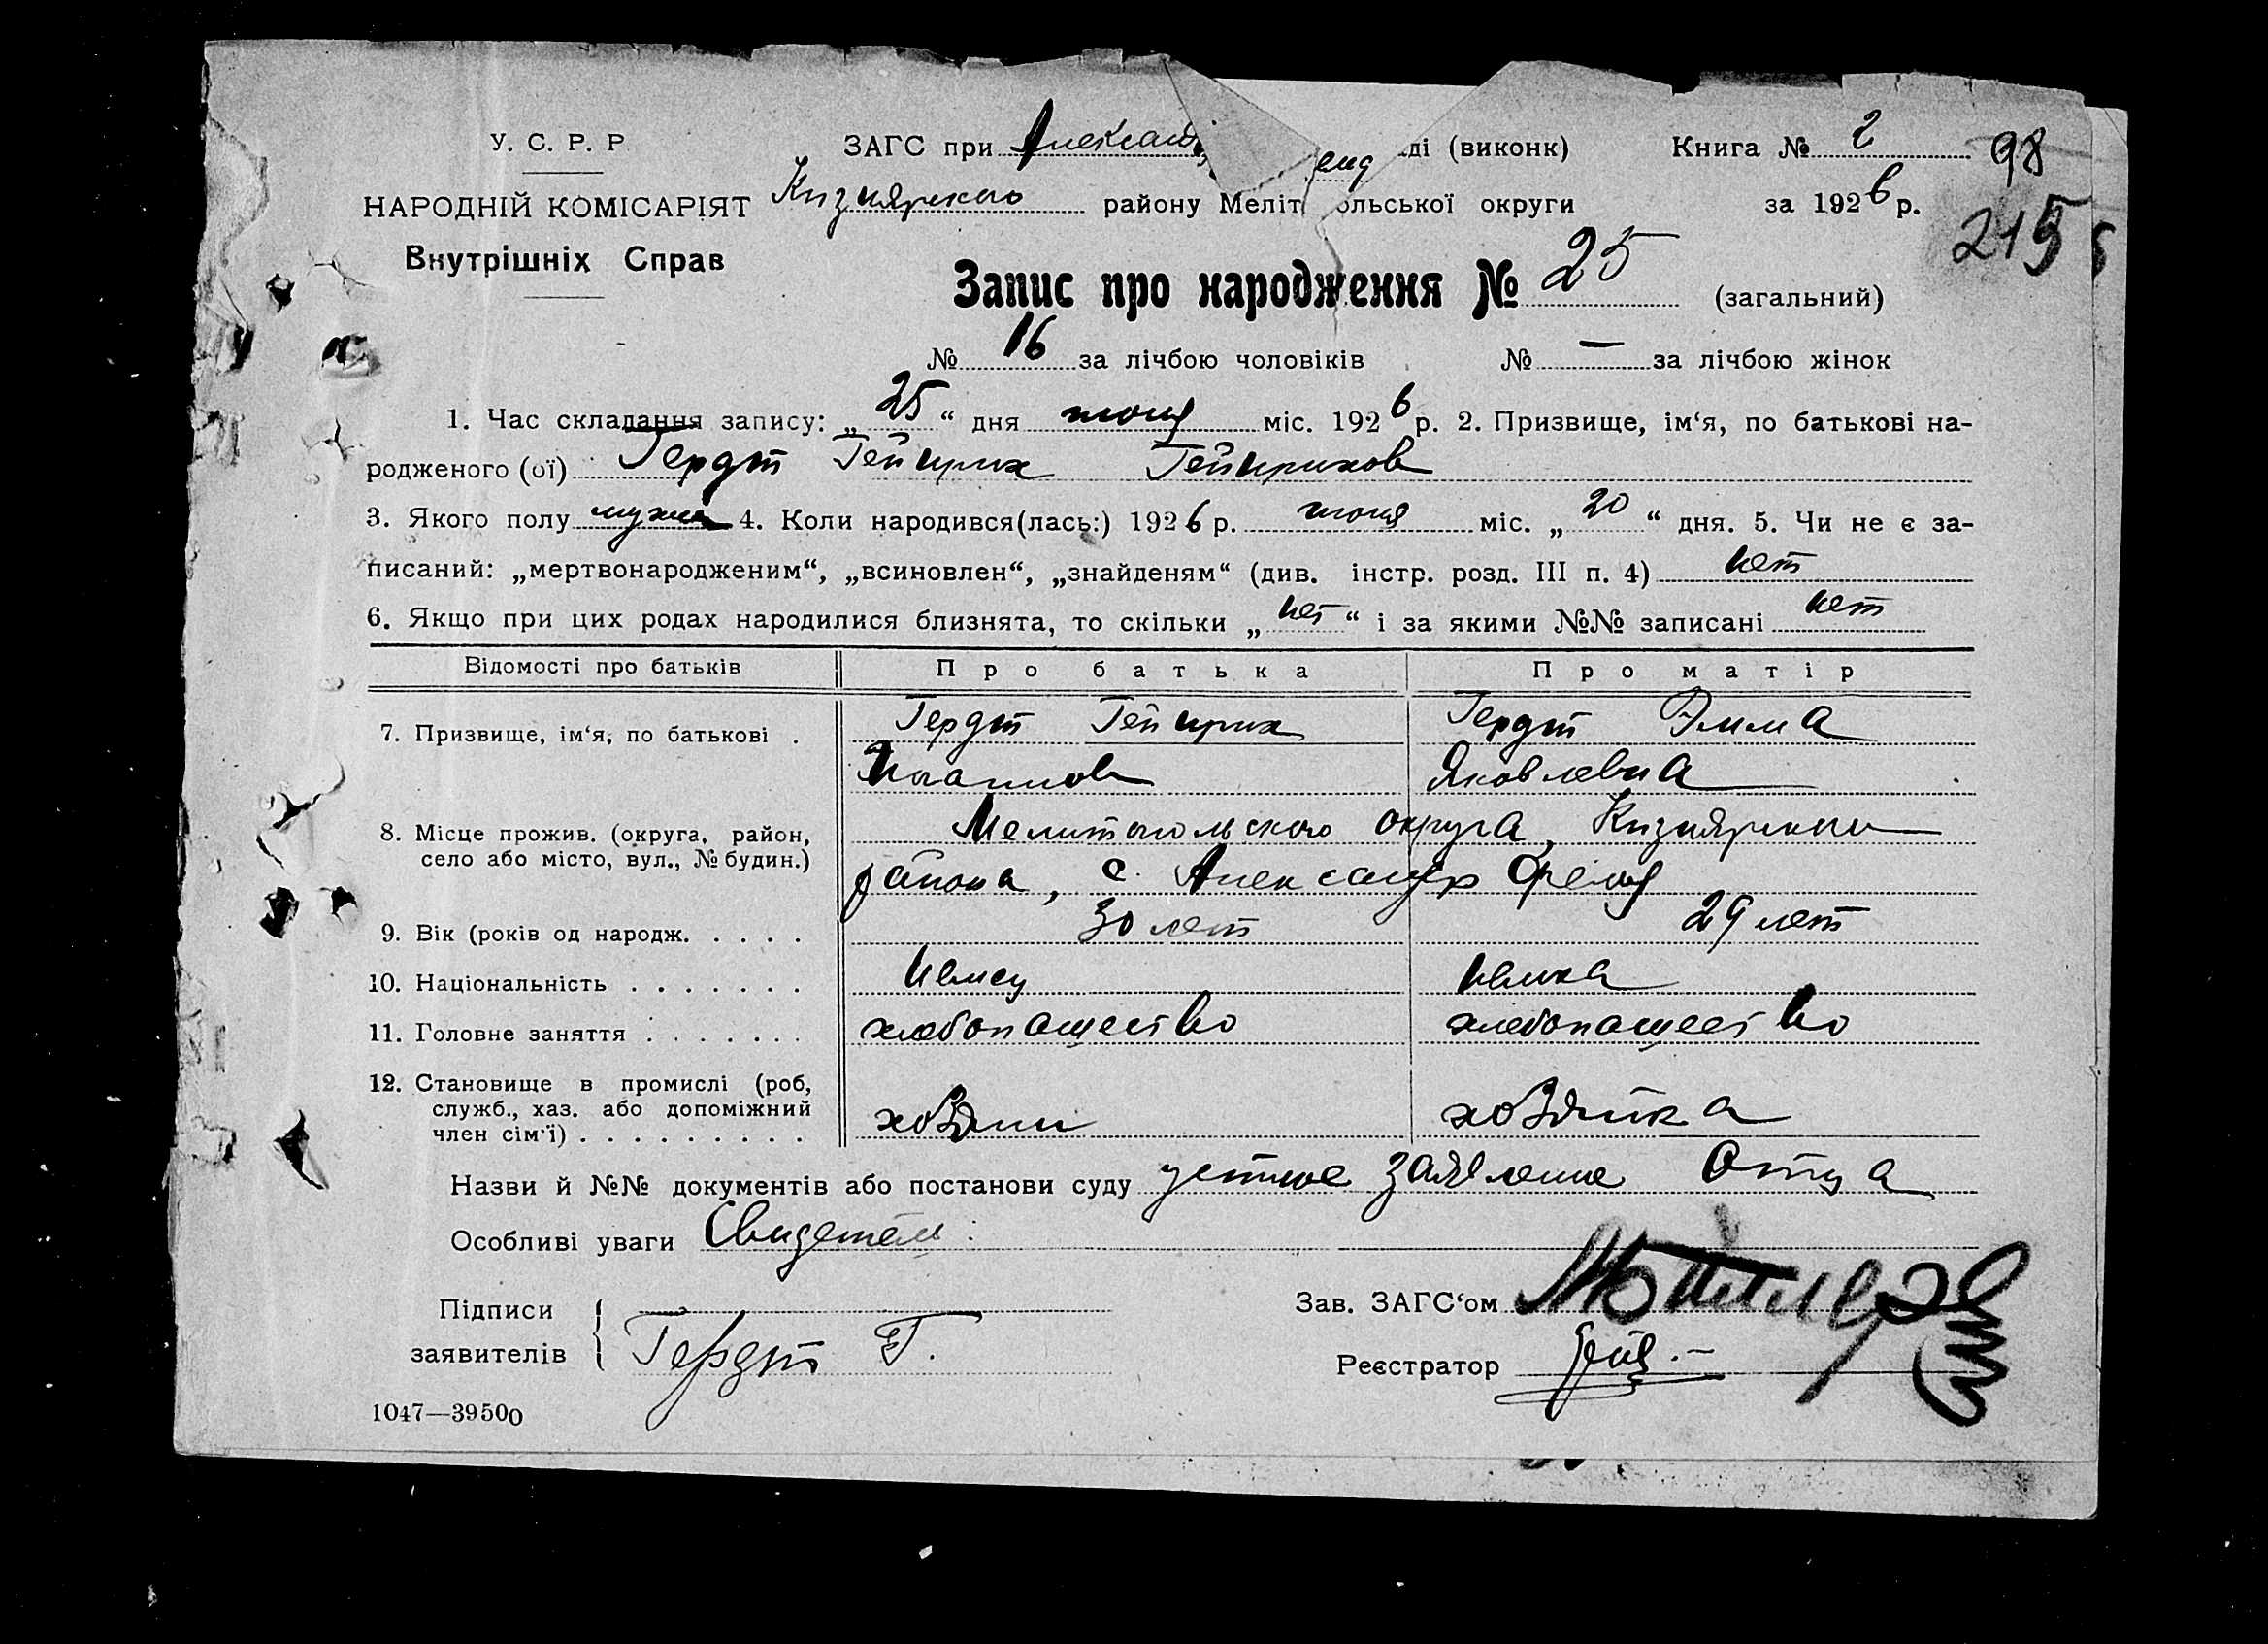 У. С. Р. Р
ЗАГС при Александ енд ді (виконк) Книга № 2 98
НАРОДНІЙ КОМІСАРІЯТ Кизиярского району Меліт ольської округи за 1926 р.
Внутрішніх Справ 215
Запис про народження № 25 (загальний)
№ 16 за лічбою чоловіків № — за лічбою жінок
1. Час складання запису: „25“ дня июня міс. 1926 р. 2. Призвище, ім‘я, по батькові на-
родженого (ої) Гердт Гейнрих Гейнрихов
3. Якого полу мужск 4. Коли народився(лась:) 1926 р. июня міс. „20“ дня. 5. Чи не є за-
писаний: „мертвонародженим“, „всиновлен“, „знайденям“ (див. інстр. розд. III п. 4) нет
6. Якщо при цих родах народилися близнята, то скільки „нет“ і за якими №№ записані нет
Відомості про батьків Про батька Про матір
7. Призвище, ім‘я, по батькові . Гердт Гейнрих Гердт Эмма
Иванов Яковлевна
8. Місце прожив. (округа, район, Мелитопольского округа, Кизиярского
село або місто, вул., № будин.) района, с. Александр Фельд
9. Вік (років од народж. . . . . 30 лет 29 лет
10. Національність . . . . . . . Немец Немка
11. Головне заняття . . . . . . . хлебопашество хлебопашество
12. Становище в промислі (роб,
служб., хаз. або допоміжний хозяин хозяйка
член сім‘ї) . . . . . . . . .
Назви й №№ документів або постанови суду устное заявление Отца
Особливі уваги Свидетели:
Підписи Зав. ЗАГС‘ом
заявителів Гердт Г. Реєстратор
1047—39500